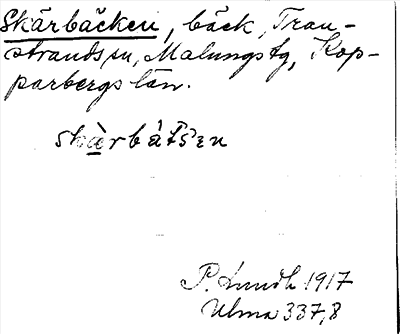 Skärbäcken, bäck, Tran-
strands sn, Malungs tg, Kop-
parbergs län.
skàrbát̄s̄en
P. Lundh 1917
Ulma 337,8